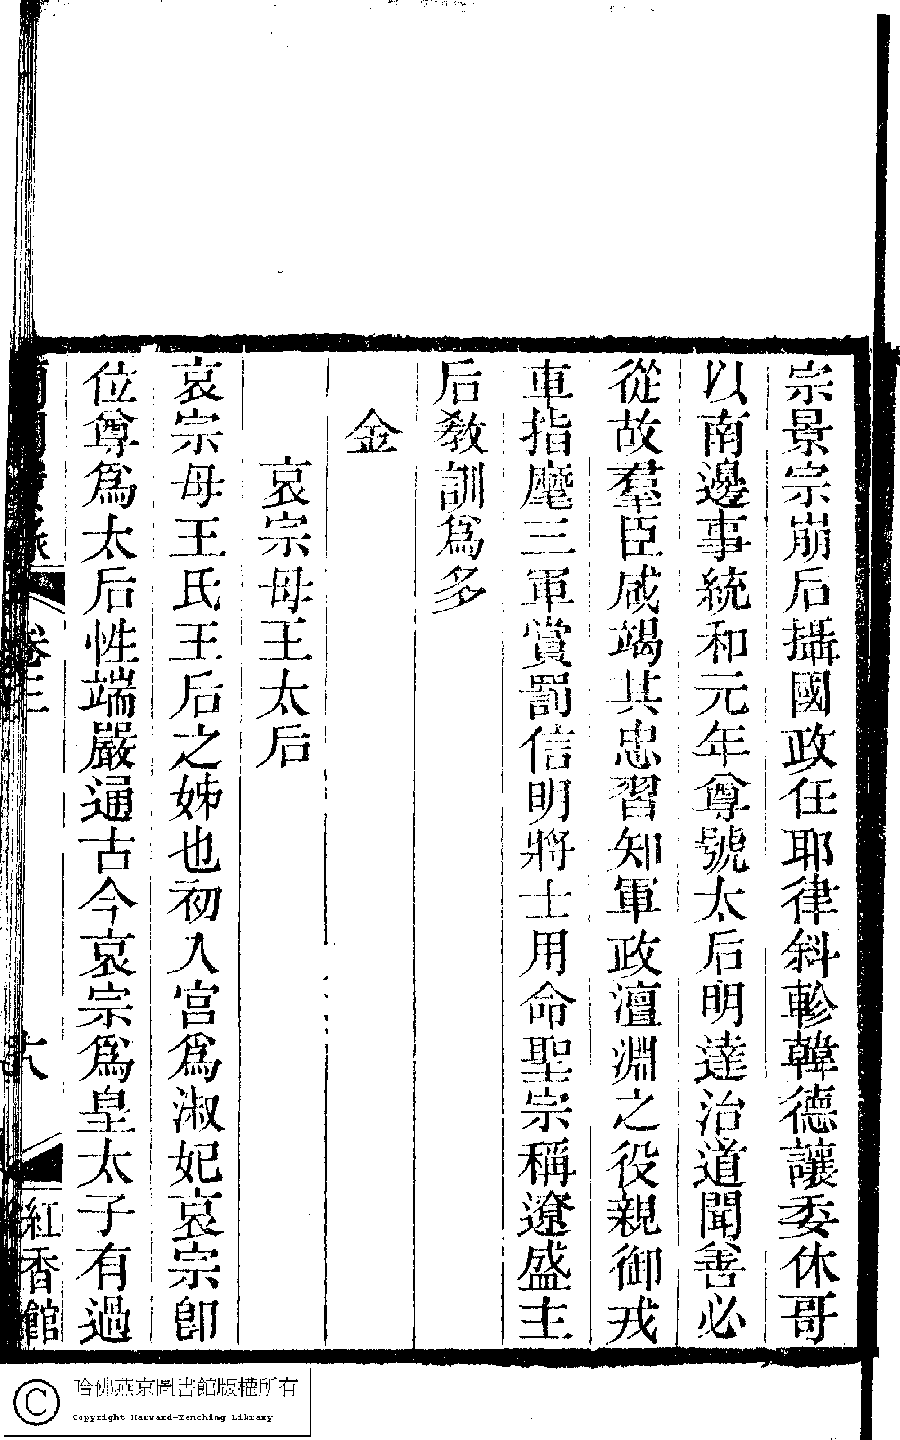 宗景宗崩后攝國政任耶律斜軫韓德讓委休哥
以南邊事統和元年尊號太后明達治道聞善必
從故羣臣咸竭其忠習知軍政澶淵之役親御戎
車指麾三軍賞罰信明將士用命聖宗稱遼盛主
后教訓爲多
金
哀宗母王太后
哀宗母王氏王后之姊也初入宮爲淑妃哀宗卽
位尊爲太后性端嚴通古今哀宗爲皇太子有過
卷三
六
紅香館
哈佛燕京圖書館版權所有
Copyright Harvard-Yenching Library